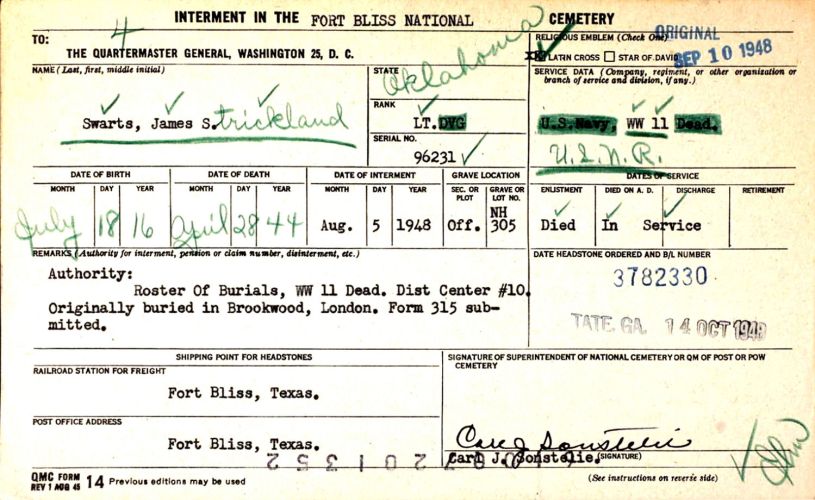 INTERMENT IN THE FORT BLISS NATIONAL CEMETERY
4
TO:
THE QUARTERMASTER GENERAL, WASHINGTON 25, D. C.
RELIGIOUS EMBLEM (Check One)
LATIN CROSS STAR OF DAVID
ORIGINAL
SEP 10 1948
NAME (Last, first, middle initial)
Swarts, James S.trickland
STATE
Oklahoma
RANK
LT. DVG
SERIAL NO.
96231
SERVICE DATA (Company, regiment, or other organization or branch of service and division, if any.)
U.S.Navy, WW 11 Dead.
U.S.N.R.
DATE OF BIRTH
MONTH DAY YEAR
July 18 16
DATE OF DEATH
MONTH DAY YEAR
April 28 44
DATE OF INTERMENT
MONTH DAY YEAR
Aug. 5 1948
GRAVE LOCATION
SEC. OR PLOT
GRAVE OR LOT NO.
Off.
NH
305
DATES OF SERVICE
ENLISTMENT DIED ON A. D. DISCHARGE RETIREMENT
Died In Service
REMARKS (Authority for interment, pension or claim number, disinterment, etc.)
Authority:
Roster Of Burials, WW 11 Dead. Dist Center #10.
Originally buried in Brookwood, London. Form 315 sub-
mitted.
DATE HEADSTONE ORDERED AND B/L NUMBER
3782330
TATE, GA. 14 OCT 1948
SHIPPING POINT FOR HEADSTONES
RAILROAD STATION FOR FREIGHT
Fort Bliss, Texas.
POST OFFICE ADDRESS
Fort Bliss, Texas.
SIGNATURE OF SUPERINTENDENT OF NATIONAL CEMETERY OR QM OF POST OR POW CEMETERY
Carl J Sonstelie
Carl J. Sonstelie. (SIGNATURE)
(See instructions on reverse side)
QMC FORM
REV 1 AUG 45 14 Previous editions may be used